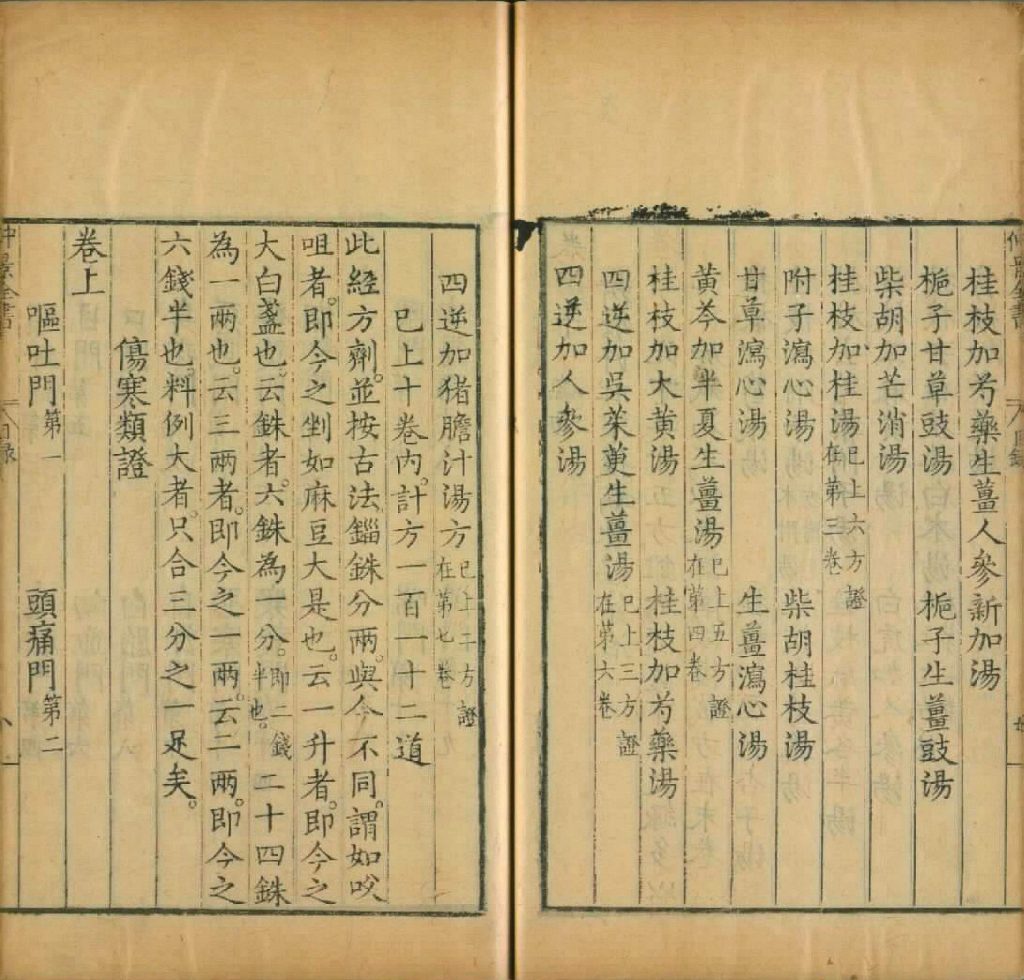 桂枝加芍藥生薑人參新加湯
梔子甘草豉湯　梔子生薑豉湯
柴胡加芒消湯
桂枝加桂湯已上六方證在第三卷
附子瀉心湯　柴胡桂枝湯
甘草瀉心湯　生薑瀉心湯
黄芩加半夏生薑湯已上五方證在第四卷
桂枝加大黄湯　桂枝加芍藥湯
四逆加吳茱萸生薑湯已上三方證在第六卷
四逆加人參湯
四逆加猪膽汁湯方已上二方證在第七卷
已上十卷内。計方一百一十二道
此經方劑。並按古法錙銖分兩。與今不同。謂如㕮
咀者。即今之剉如麻豆大是也。云一升者。即今之
大白盞也。云銖者。六銖為一分。即二錢半也。二十四銖
為一兩也。云三兩者。即今之一兩。云二兩。即今之
六錢半也。料例大者。只合三分之一足矣。
傷寒類證
卷上
嘔吐門第一　頭痛門第二
仲景全書